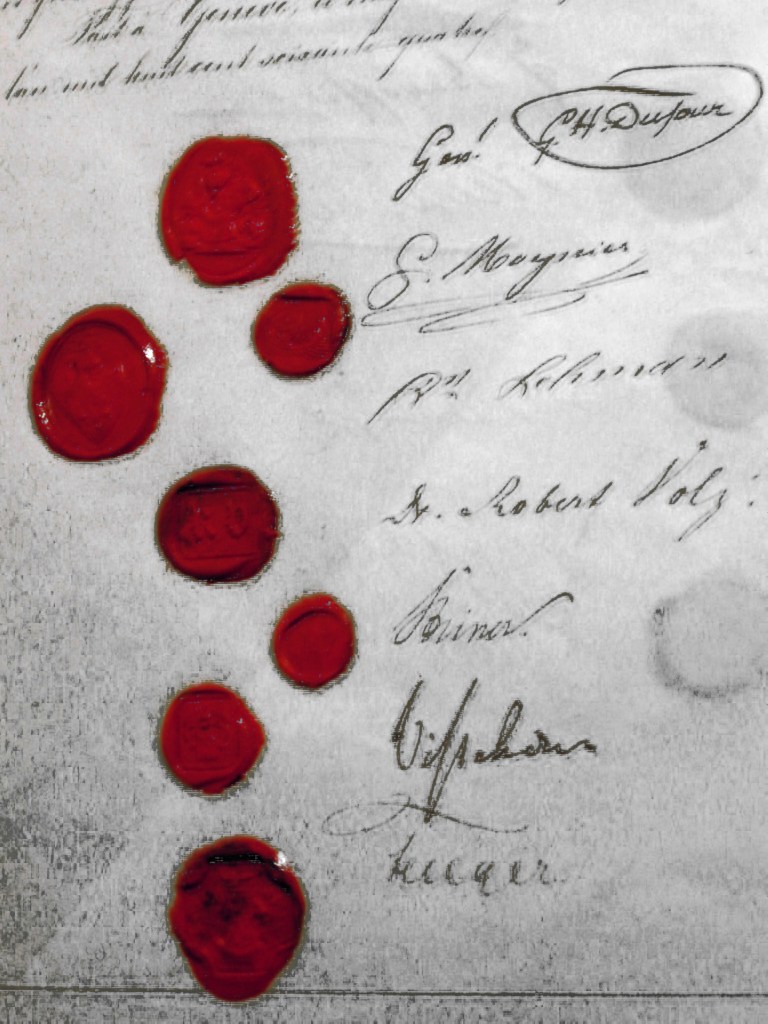 Fait à Genève, le
l'an mil huit cent soixante quatre
Gen! G H. Dufour
G. Moynier
Dr. Lehman
Dr. Robert Volz.
Steiner.
Visschers